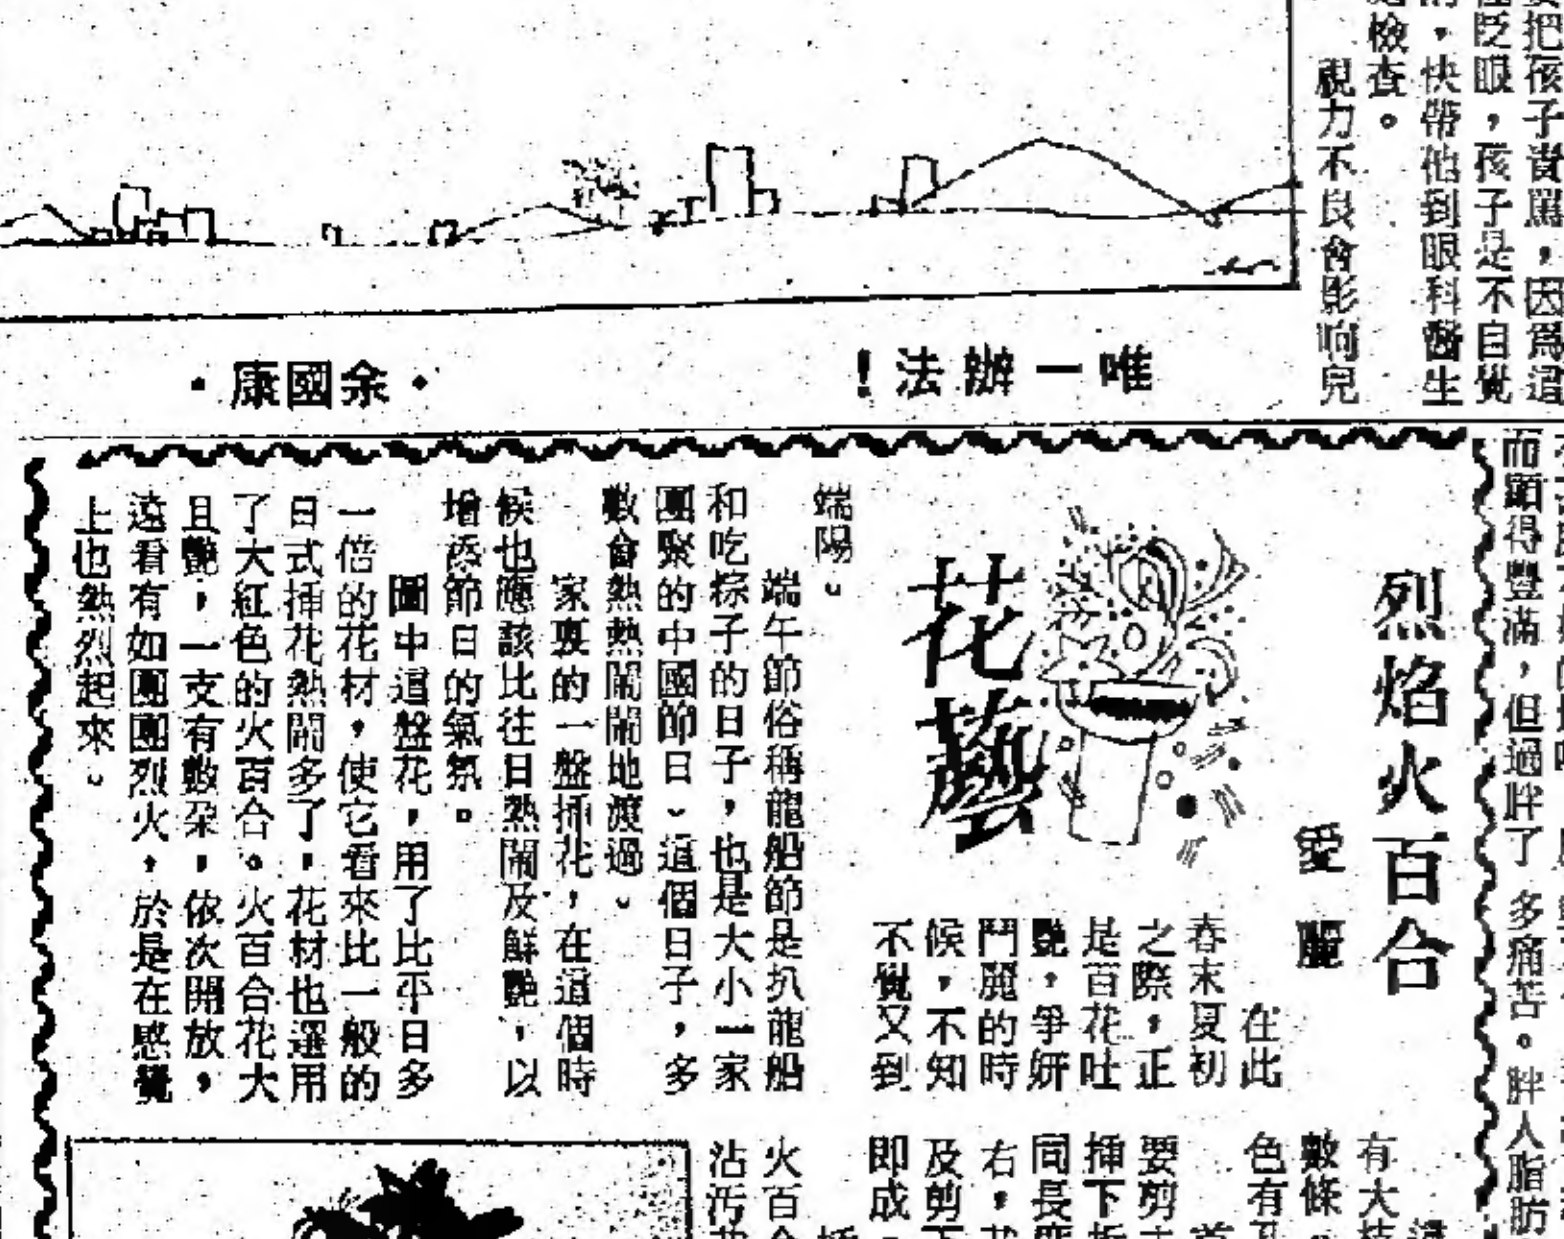 要把孩子責罵，因爲這
眨眼，孩子是不自覺
的，快帶他到眼科醫生
檢查。
視力不良會影响兒
唯一辦法！
・余國康・
而顯得豐滿，但過胖了
多痛苦。胖人脂肪
烈焰火百合
愛麗
花藝
在此
春末夏初
之際，正
是百花吐
艷，爭妍
鬥麗的時
候，不知
不覺又到
端陽。
端午節俗稱龍船節是扒龍船
和吃粽子的日子，也是大小一家
團聚的中國節日。這個日子，多
數會熱熱鬧鬧地渡過。
家裏的一盤揷花，在這個時
候也應該比往日熱鬧及鮮艷，以
增添節日的氣氛。
圖中這盤花，用了比平日多
一倍的花材，使它看來比一般的
日式揷花熱鬧多了，花材也選用
了大紅色的火百合。火百合花大
且艷，一支有數朶，依次開放，
遠看有如團團烈火，於是在感覺
上也熱烈起來。
有大枝
數條。
色有
要剪
揷下
同長
右，
及剪下
即成。
火百合
沾汚